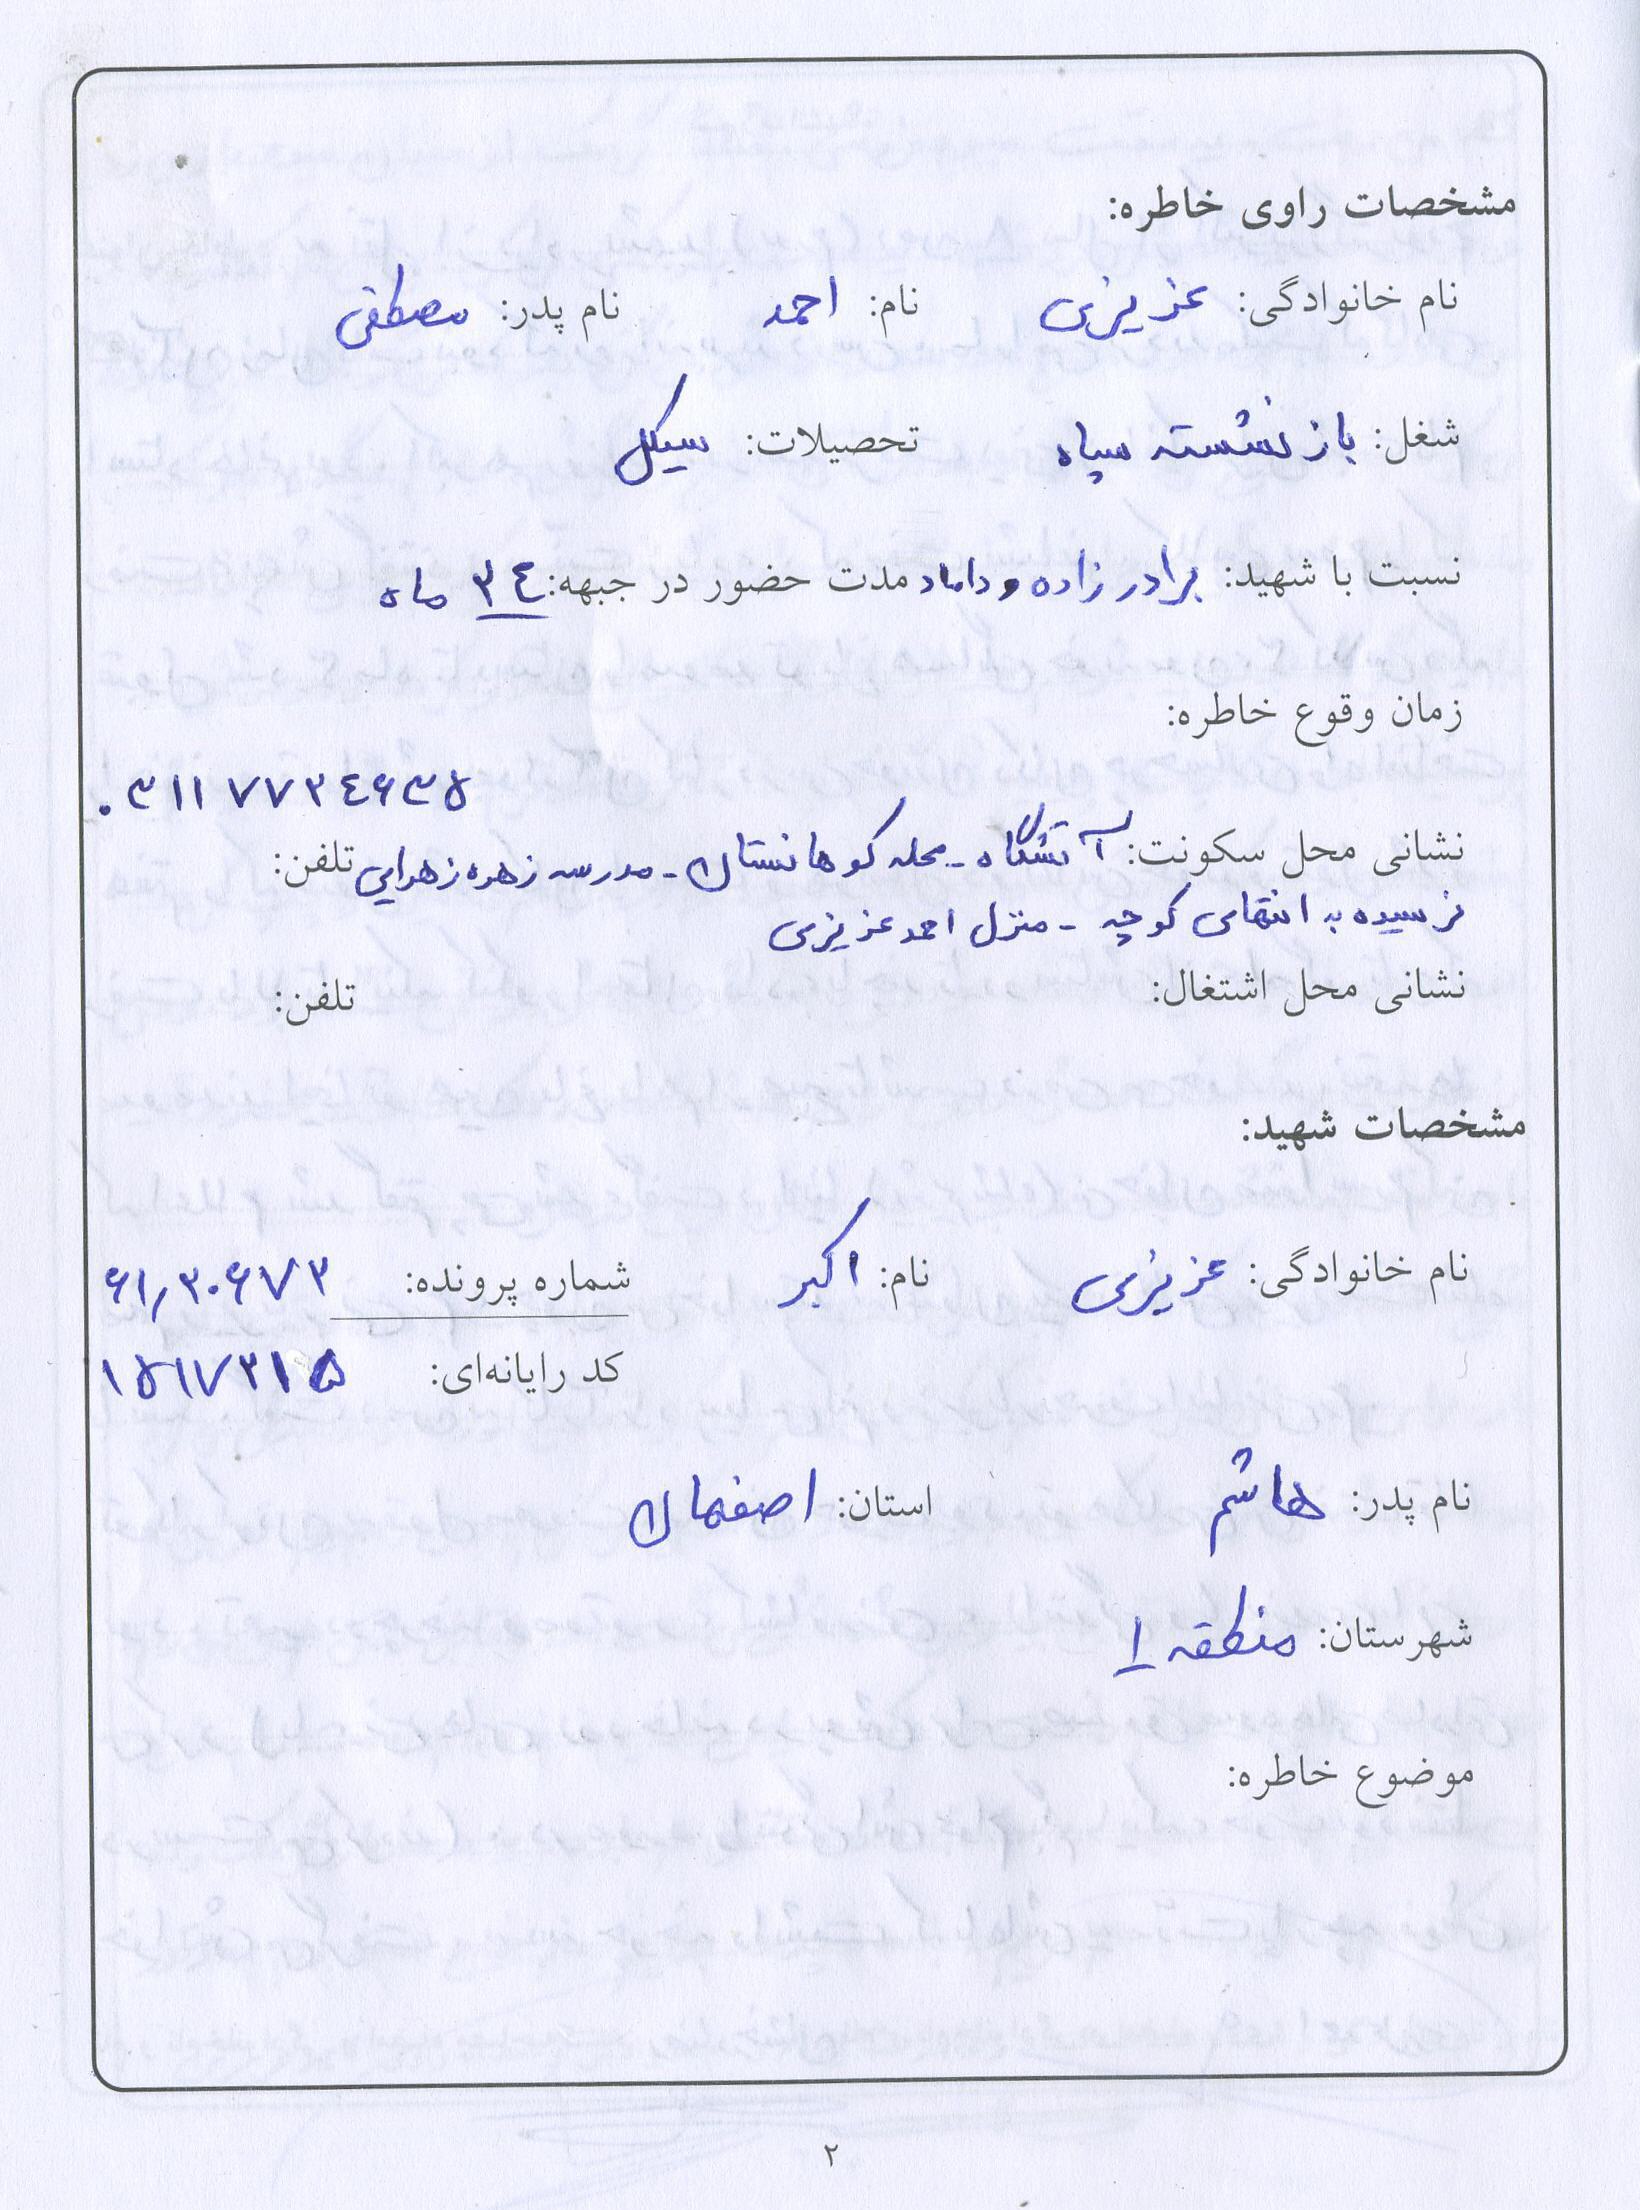 مشخصات راوی خاطره:
نام خانوادگی: عزیزی نام: احمد نام پدر: مصطفی
شغل: بازنشسته سپاه تحصیلات: سیکل
نسبت با شهید: برادرزاده و داماد مدت حضور در جبهه: ۳٤ ماه
زمان وقوع خاطره:
۰۳۱۱۷۷۲٤۶۳۵
نشانی محل سکونت: آتشگاه - محله کوهانستان - مدرسه زهره زهرایی تلفن:
نرسیده به انتهای کوچه - منزل احمد عزیزی
نشانی محل اشتغال: تلفن:
مشخصات شهید:
نام خانوادگی: عزیزی نام: اکبر شماره پرونده: ۶۱٫۲۰۶۷۲
کد رایانه‌ای: ۱۵۱۷۲۱۵
نام پدر: هاشم استان: اصفهان
شهرستان: منطقه ۱
موضوع خاطره:
۲